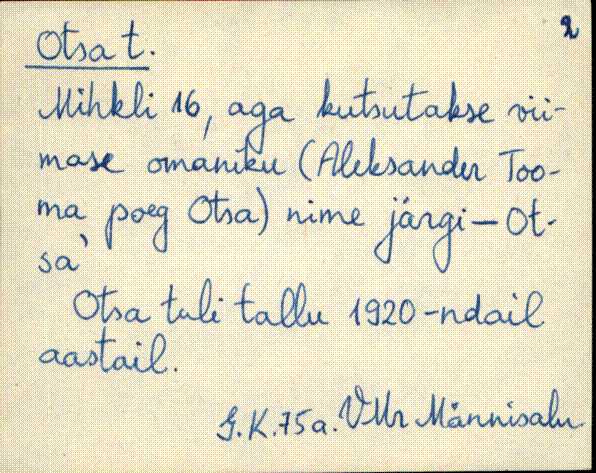 2
Otsa t.
Mihkli 16, aga kutsutakse vii-
mase omaniku (Aleksander Too-
ma poeg Otsa) nime järgi – Ot-
sa`
Otsa tuli tallu 1920-ndail
aastail.
G.K. 75a. VMr Männisalu